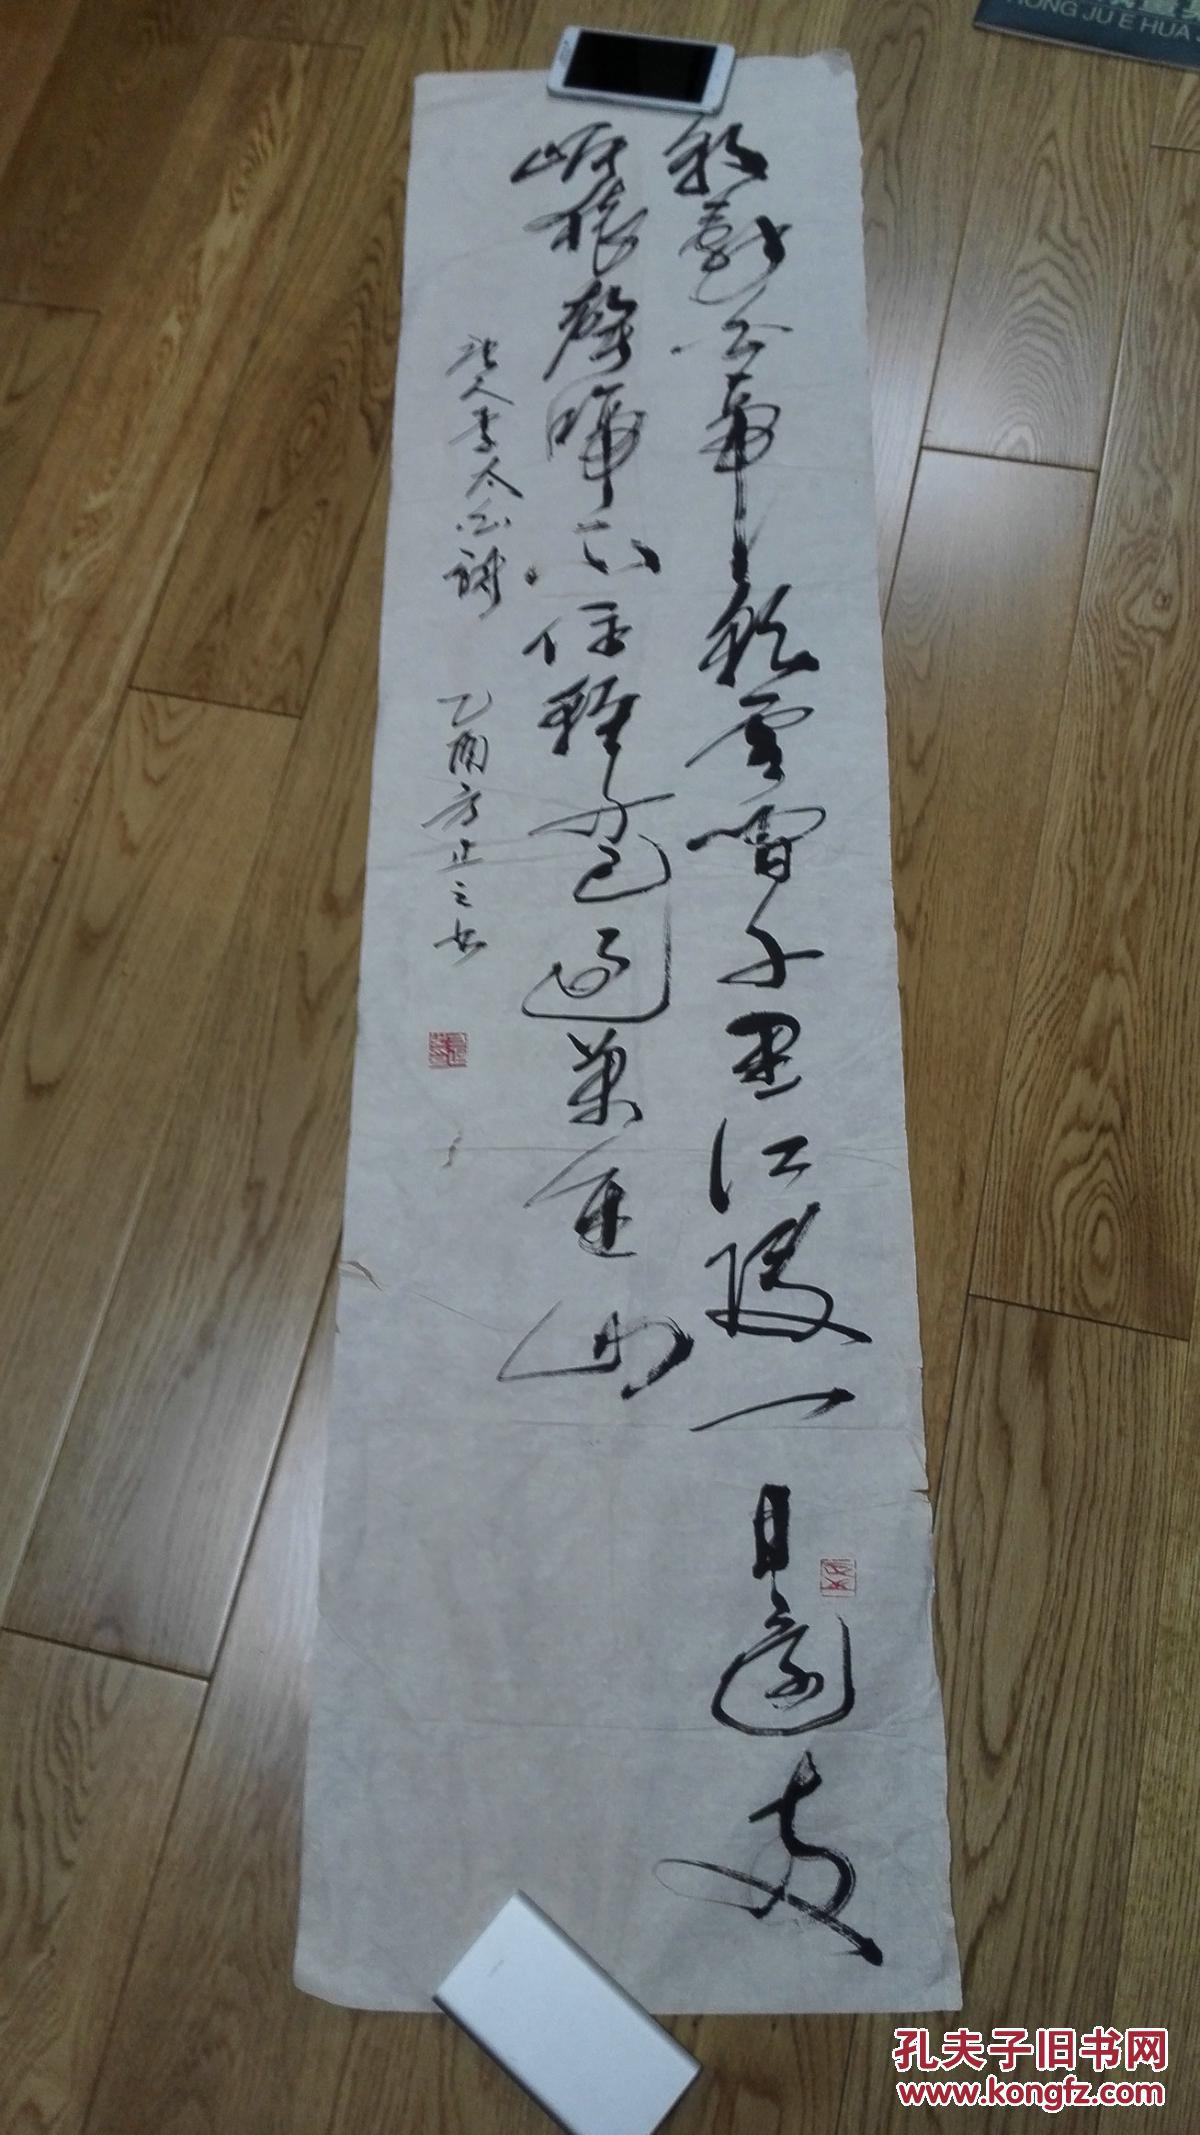 HONG JU E HUA
朝辭白帝彩雲間千里江陵一日還兩
岸猿聲啼不住輕舟已過萬重山
唐人李太白詩 乙酉方正之书
孔夫子旧书网
www.kongfz.com